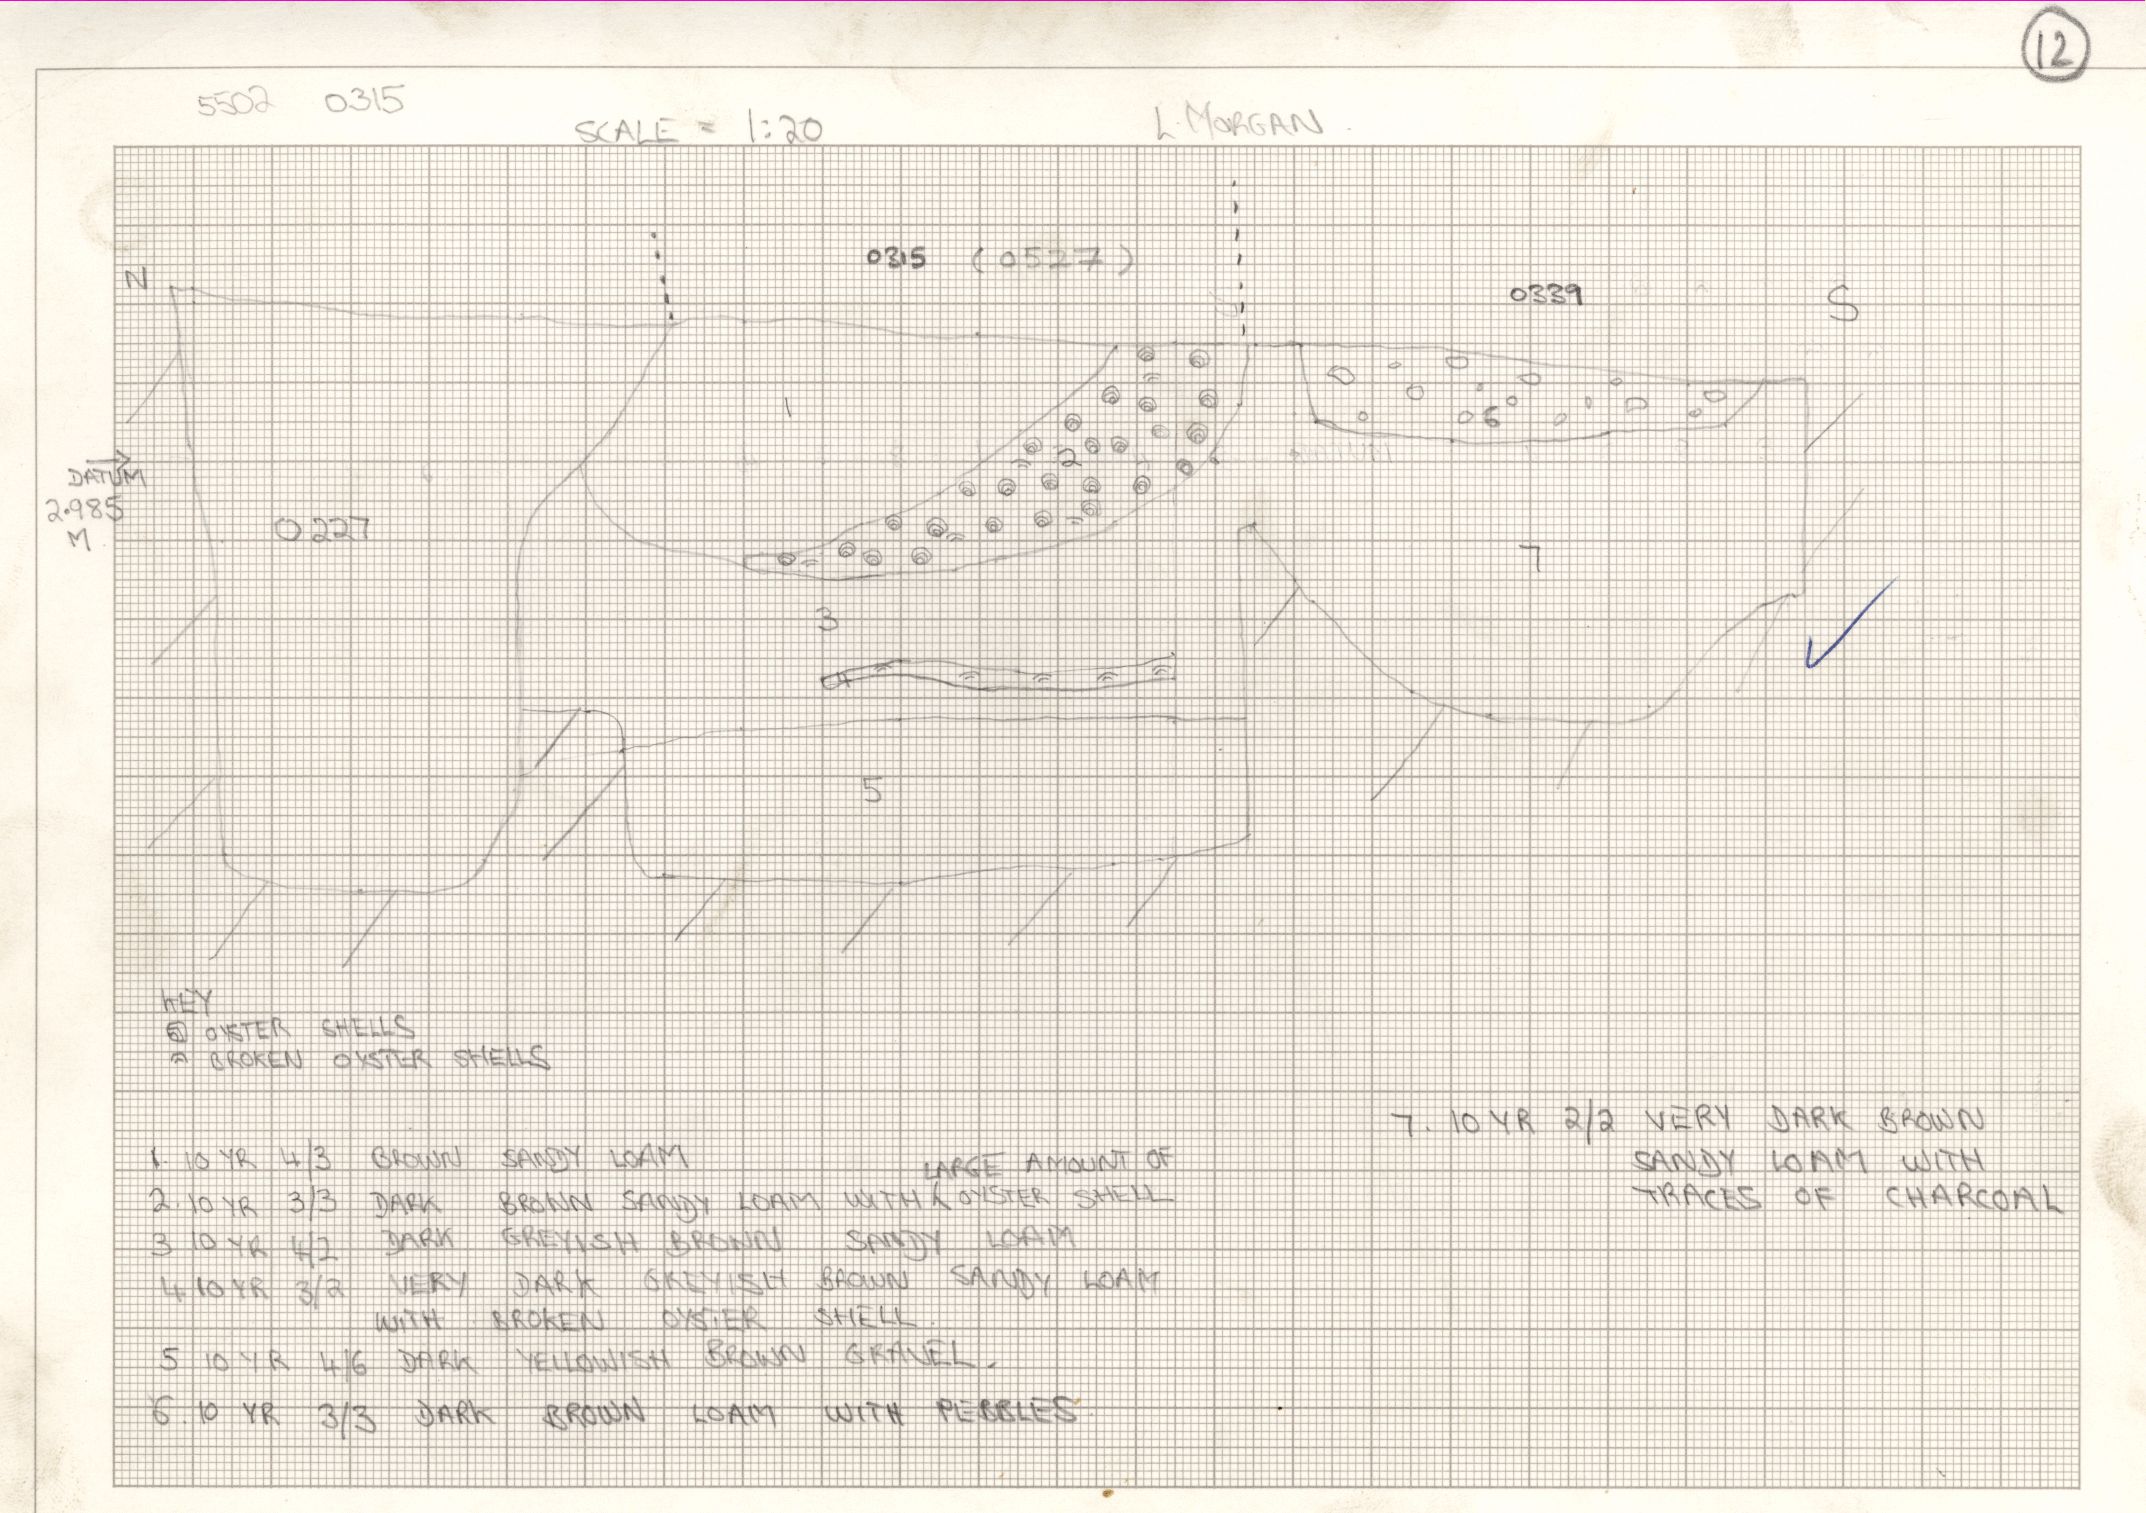 12
5502 0315
SCALE = 1:20
L. MORGAN
0315 (0527)
N
0339
S
1
6
2
DATUM
2.985
M
0227
7
3
4
5
KEY
OYSTER SHELLS
BROKEN OYSTER SHELLS
1. 10 YR 4/3 BROWN SANDY LOAM
LARGE AMOUNT OF
2. 10 YR 3/3 DARK BROWN SANDY LOAM WITH OYSTER SHELL
3 10 YR 4/2 DARK GREYISH BROWN SANDY LOAM
4 10 YR 3/2 VERY DARK GREYISH BROWN SANDY LOAM
WITH BROKEN OYSTER SHELL.
5 10 YR 4/6 DARK YELLOWISH BROWN GRAVEL.
6. 10 YR 3/3 DARK BROWN LOAM WITH PEBBLES.
7. 10 YR 2/2 VERY DARK BROWN
SANDY LOAM WITH
TRACES OF CHARCOAL